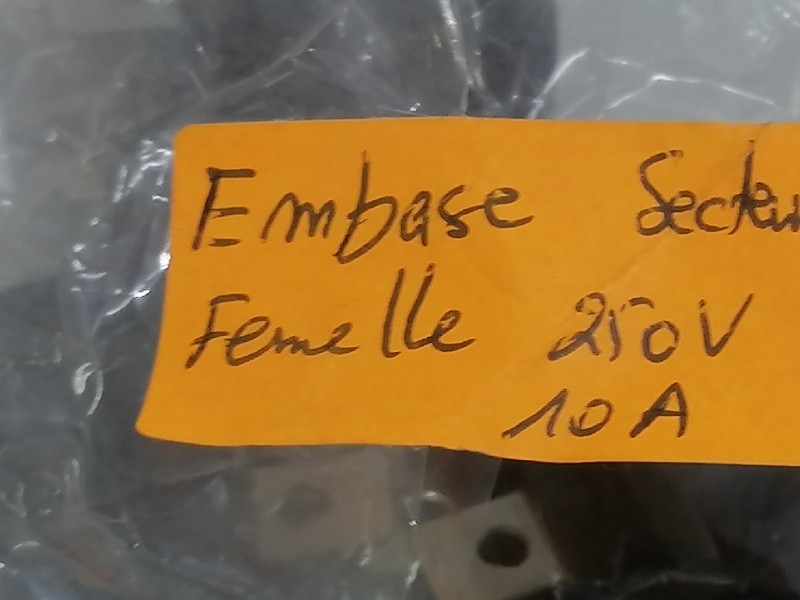 Embase Secteur
Femelle 250V
10 A